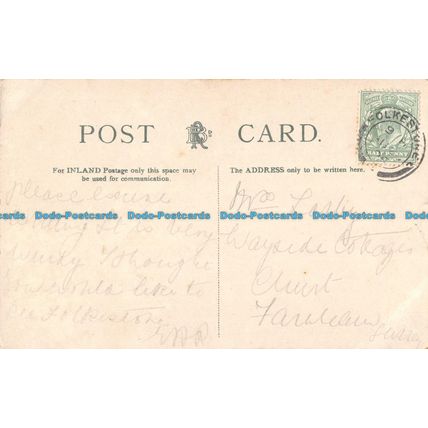 POST CARD.
For INLAND Postage only this space may
be used for communication.
The ADDRESS only to be written here.
FOLKESTONE
HALFPENNY
Please excuse
is very
windy I thought
you would like to
see Folkestone
Dodo-Postcards Dodo-Postcards Dodo-Postcards Dodo-Postcards Dodo-Postcards
Mrs
Wayside Cottages
Churt
Farnham
Surrey